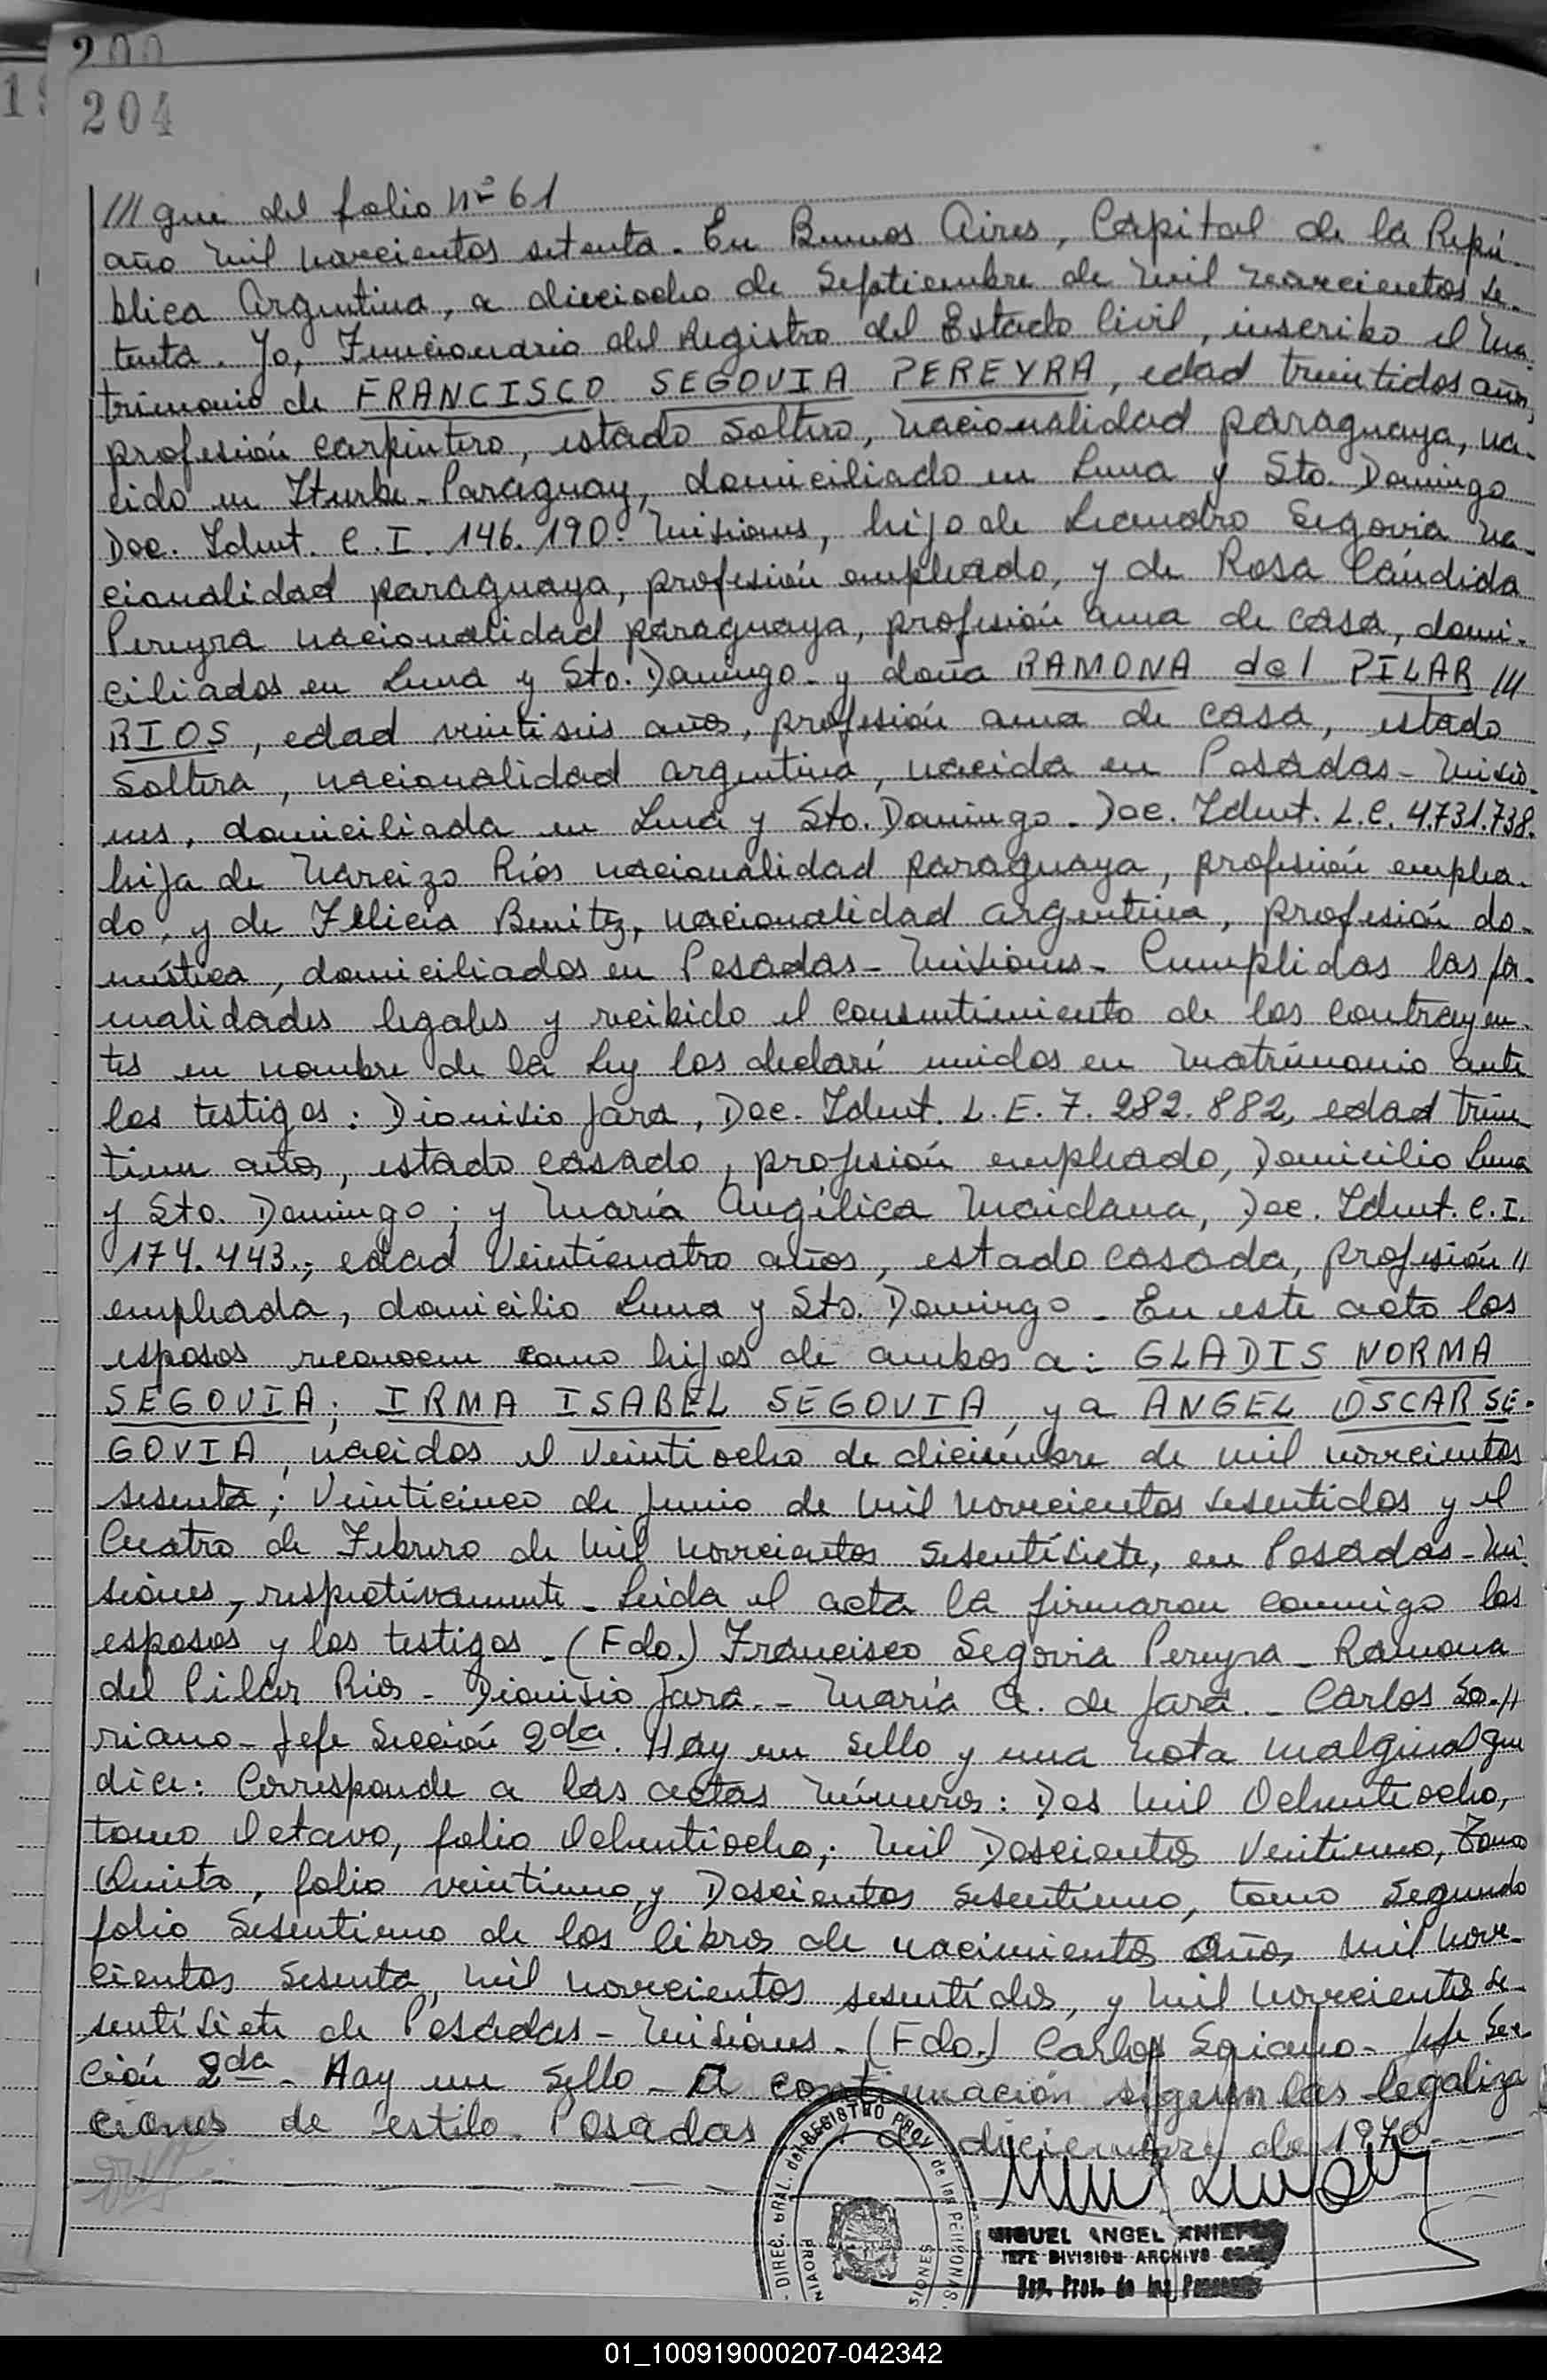 200
204
/// que del folio nº 61
año mil novecientos setenta. En Buenos Aires, Capital de la Repú-
blica Argentina, a dieciocho de Septiembre de mil novecientos se-
tenta. Yo, Funcionario del Registro del Estado Civil, inscribo el ma-
trimonio de FRANCISCO SEGOVIA PEREYRA, edad treintidos años,
profesión carpintero, estado Soltero, nacionalidad paraguaya, na-
cido en Iturbe-Paraguay, domiciliado en Luna y Sto. Domingo
Doc. Ident. C.I. 146.190. Misiones, hijo de Leandro Segovia na-
cionalidad paraguaya, profesión empleado, y de Rosa Cándida
Pereyra nacionalidad paraguaya, profesión ama de casa, domi-
ciliados en Luna y Sto. Domingo. y doña RAMONA del PILAR ///
RIOS, edad veintiseis años, profesión ama de casa, estado
Soltera, nacionalidad argentina, nacida en Posadas - Misio-
nes, domiciliada en Luna y Sto. Domingo. Doc. Ident. L.C. 4.731.738.
hija de Narcizo Ríos nacionalidad paraguaya, profesión emplea-
do, y de Felicia Benitez, nacionalidad argentina, profesión do-
méstica, domiciliados en Posadas - Misiones - Cumplidas las for-
malidades legales y recibido el consentimiento de los contrayen-
tes en nombre de la Ley los declaré unidos en matrimonio ante
los testigos: Dionisio Jara, Doc. Ident. L.E. 7.282.882, edad trein-
tiun años, estado casado, profesión empleado, Domicilio Luna
y Sto. Domingo; y María Angélica Maidana, Doc. Ident. C.I.
174.443.; edad Veinticuatro años, estado casada, profesión //
empleada, domicilio Luna y Sto. Domingo - En este acto los
esposos reconocen como hijos de ambos a: GLADIS NORMA
SEGOVIA; IRMA ISABEL SEGOVIA, y a ANGEL OSCAR SE-
GOVIA, nacidos el Veintiocho de diciembre de mil novecientos
sesenta; Veinticinco de Junio de mil novecientos sesentidos y el
Cuatro de Febrero de mil novecientos sesentisiete, en Posadas - Mi-
siones, respectivamente - Leída el acta la firmaron conmigo los
esposos y los testigos - (Fdo.) Francisco Segovia Pereyra - Ramona
del Pilar Rios - Dionisio Jara. - María A. de Jara. - Carlos So-//
riano - Jefe Sección 2da. Hay un Sello y una nota malginal que
dice: Corresponde a las actas números: Dos mil Ochentiocho,
tomo Octavo, folio Ochentiocho; mil Doscientos Veintiuno, Tomo
Quinto, folio veintiuno, y Doscientos sesentiuno, tomo Segundo
folio Sesentiuno de los libros de nacimientos años mil nove-
cientos Sesenta, mil novecientos sesentidos, y mil novecientos se-
sentisiete de Posadas - Misiones - (Fdo.) Carlos Soriano - Jefe Sec-
ción 2da - Hay un Sello - A continuación siguen las legaliza
ciones de estilo. Posadas de diciembre de 1970
DIREC. GRAL. del REGISTRO PROV. de las PERSONAS
MIGUEL ANGEL
JEFE DIVISION ARCHIVO
Reg. Prov. de las Personas
01_100919000207-042342